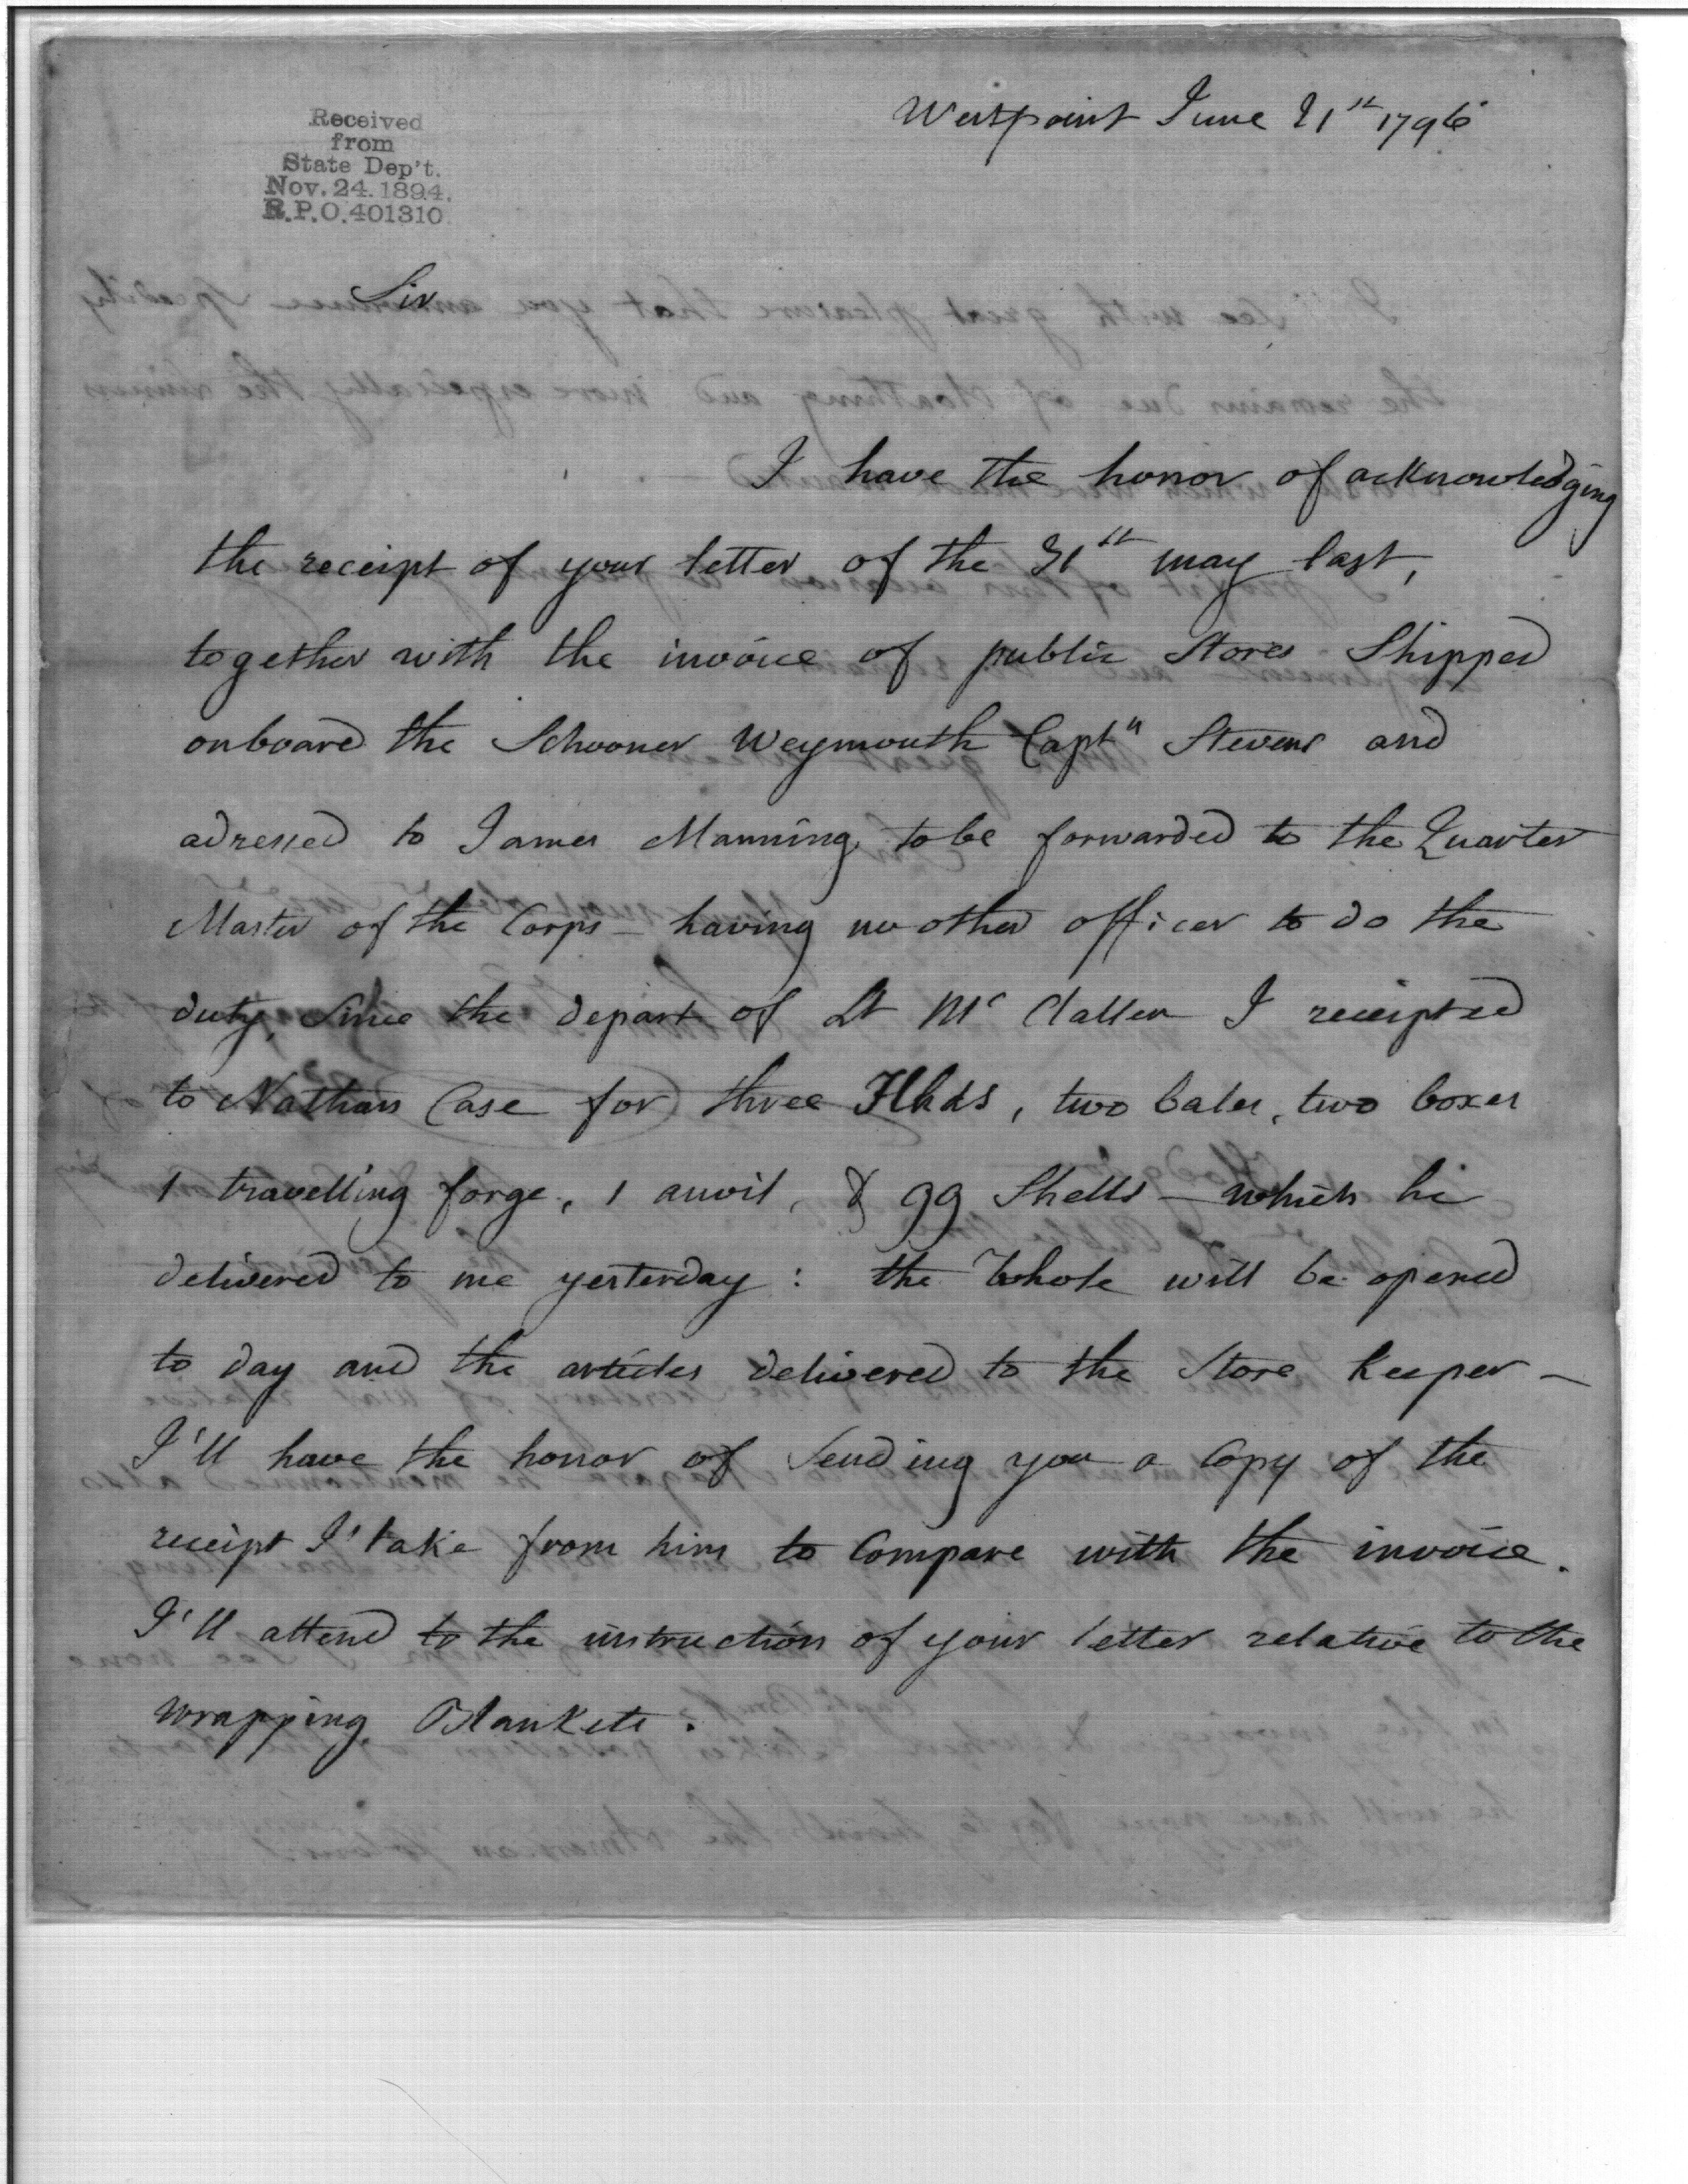 Received
from
State Dep't.
Nov. 24. 1894.
R.P.O. 401310
Westpoint June 21st 1796
Sir
I have the honor of acknowledging
the receipt of your letter of the 31st may last,
together with the invoice of public Stores Shipped
onboard the Schooner Weymouth Captn Stevens and
adressed to James Manning, to be forwarded to the Quarter
Master of the Corps - having no other officer to do the
duty, Since the depart of Lt Mc Clallen I receipted
to Nathan Case for three Hhds, two bales, two boxes
1 travelling forge, 1 anvil, & 99 Shells - which he
delivered to me yesterday : the Whole will be opened
to day and the articles delivered to the Store Keeper -
I'll have the honor of Sending you a Copy of the
receipt I' take from him to Compare with the invoice.
I'll attend to the instruction of your letter relative to the
wrapping Blankets.